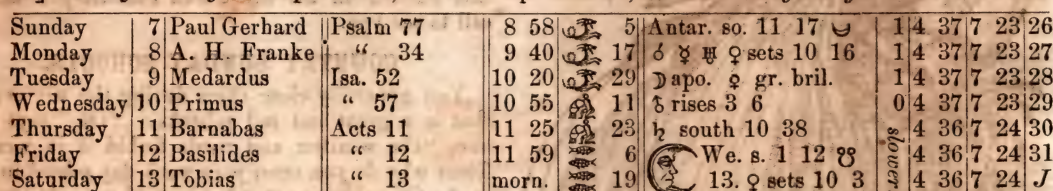 Sunday 7 Paul Gerhard Psalm 77 8 58 5 Antar. so. 11 17 1 4 37 7 23 26
Monday 8 A. H. Franke “ 34 9 40 17 ☌ ☿ ♅ ♀ sets 10 16 1 4 37 7 23 27
Tuesday 9 Medardus Isa. 52 10 20 29 ☽ apo. ♀ gr. bril. 1 4 37 7 23 28
Wednesday 10 Primus “ 57 10 55 11 rises 3 6 0 4 37 7 23 29
Thursday 11 Barnabas Acts 11 11 25 23 ♄ south 10 38 slower 4 36 7 24 30
Friday 12 Basilides “ 12 11 59 6 We. s. 1 12 ☋ 4 36 7 24 31
Saturday 13 Tobias “ 13 morn. 19 13. ♀ sets 10 3 4 36 7 24 J